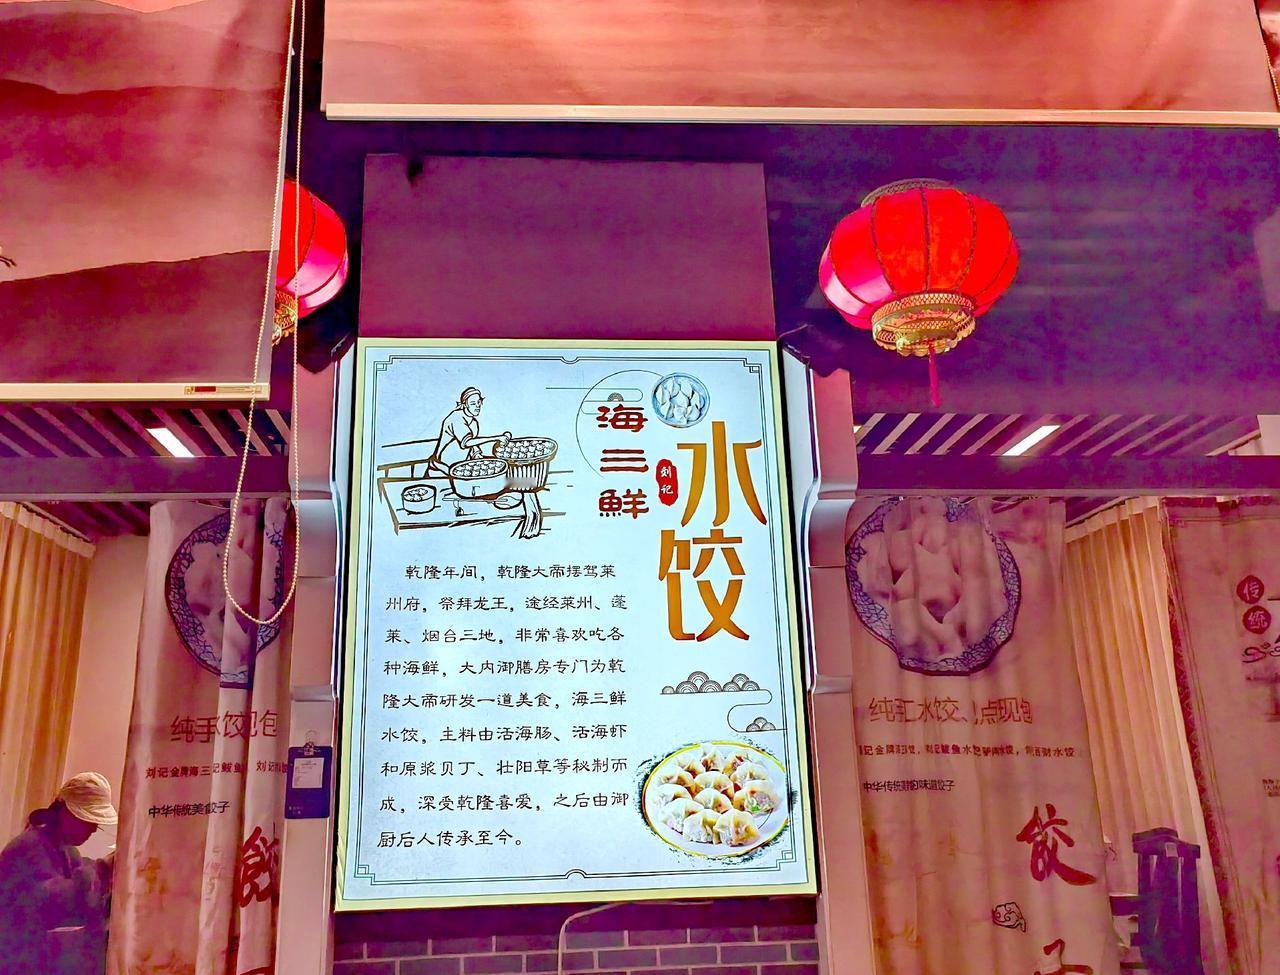 海三鲜
刘记
水饺
乾隆年间，乾隆大帝摆驾莱
州府，祭拜龙王，途经莱州、蓬
莱、烟台三地，非常喜欢吃各
种海鲜，大内御膳房专门为乾
隆大帝研发一道美食，海三鲜
水饺，主料由活海肠、活海虾
和原浆贝丁、壮阳草等秘制而
成，深受乾隆喜爱，之后由御
厨后人传承至今。
纯手
饺现包
刘记金牌海三
记鲅鱼
刘记
中华传统美
饺子
纯手工水饺、
点现包
中华传统
的味道饺子
饺
传统